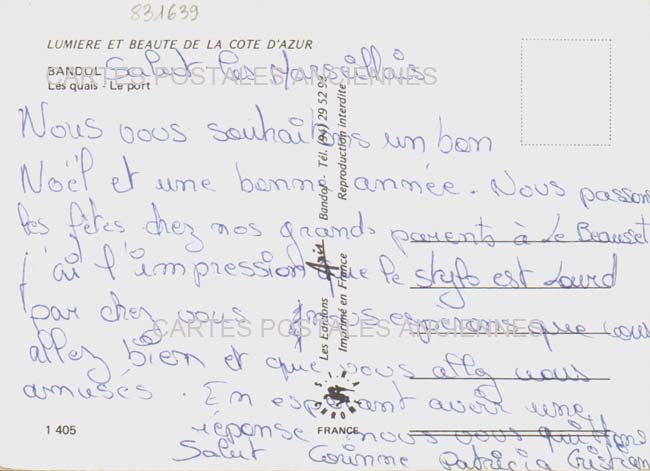 831639
LUMIERE ET BEAUTE DE LA COTE D'AZUR
BANDOL
Salut les Marseillais
CARTES POSTALES ANCIENNES
Les quais - Le port
Nous vous souhaitons un bon
Noël et une bonne année. Nous passons
les fêtes chez nos grands parents à Le Beausset
j'ai l'impression que le stylo est lourd
par chez vous nous esperons que vous
CARTES POSTALES ANCIENNES
allez bien et que vous allez vous
amusés. En esperant avoir une
réponse nous vous quittons
Salut Corinne Patricia Cristian
1 405
FRANCE
Les Editions Aris Bandol - Tél. (94) 29 52 9
Imprimé en France Reproduction interdite